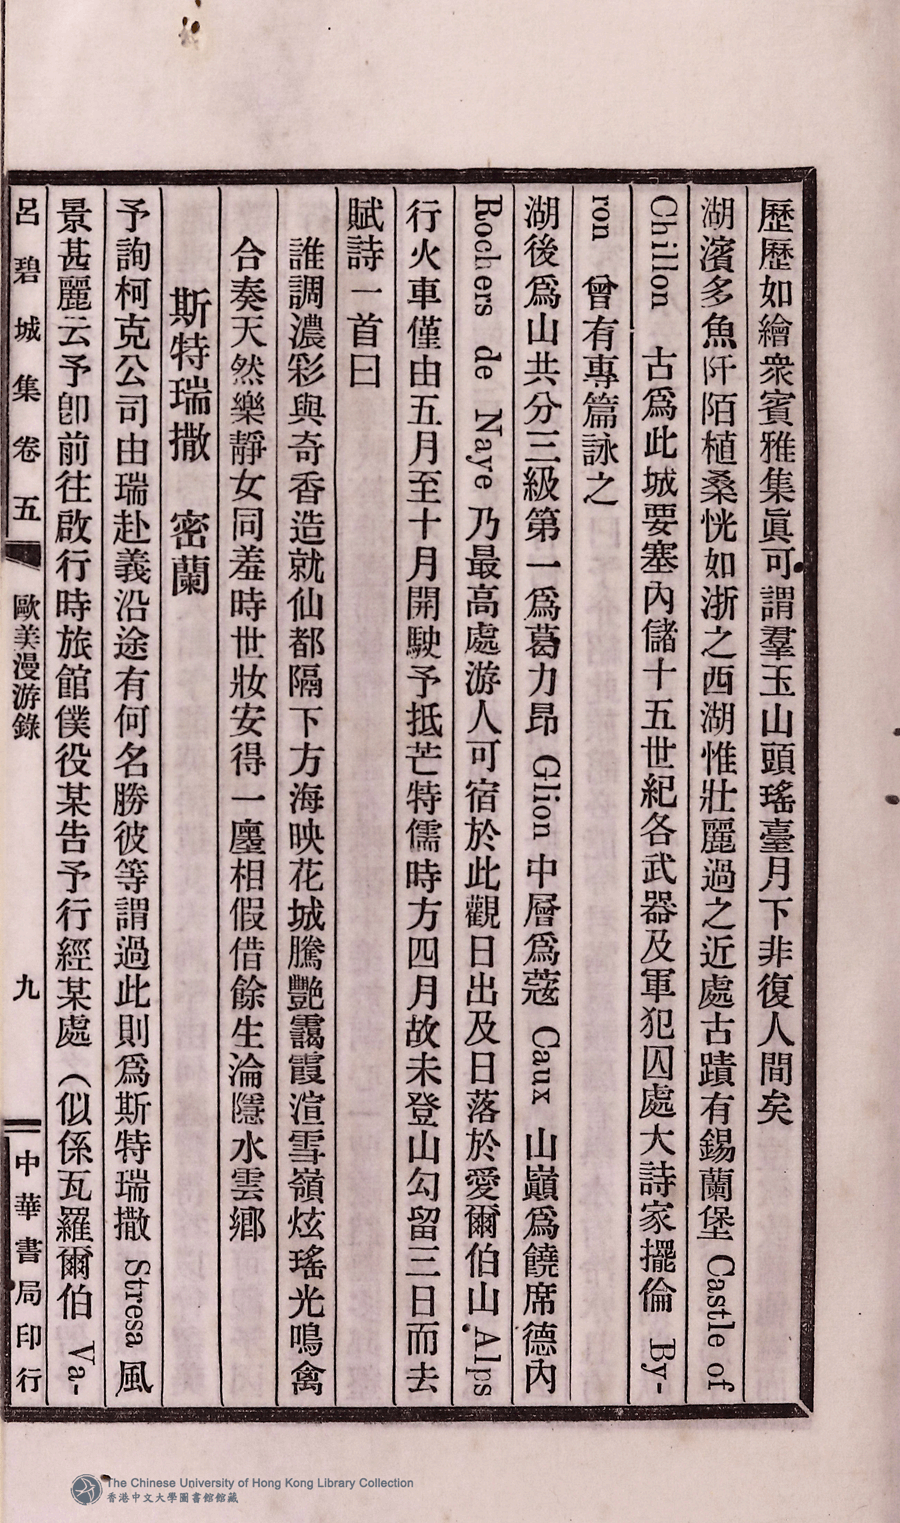 歷歷如繪衆賓雅集眞可謂羣玉山頭瑤臺月下非復人間矣
湖濱多魚阡陌植桑恍如浙之西湖惟壯麗過之近處古蹟有錫蘭堡 Castle of
Chillon 古爲此城要塞內儲十五世紀各武器及軍犯囚處大詩家擺倫 By-
ron 曾有專篇詠之
湖後爲山共分三級第一爲葛力昂 Glion 中層爲蔻 Caux 山巔爲饒席德內
Rochers de Naye 乃最高處游人可宿於此觀日出及日落於愛爾伯山 Alps
行火車僅由五月至十月開駛予抵芒特儒時方四月故未登山勾留三日而去
賦詩一首曰
誰調濃彩與奇香造就仙都隔下方海映花城騰艷靄霞渲雪嶺炫瑤光鳴禽
合奏天然樂靜女同羞時世妝安得一廛相假借餘生淪隱水雲鄉
斯特瑞撒 密蘭
予詢柯克公司由瑞赴義沿途有何名勝彼等謂過此則爲斯特瑞撒 Stresa 風
景甚麗云予卽前往啟行時旅館僕役某告予行經某處(似係瓦羅爾伯 Va-
呂碧城集卷五 歐美漫游錄 九 中華書局印行
The Chinese University of Hong Kong Library Collection
香港中文大學圖書館館藏